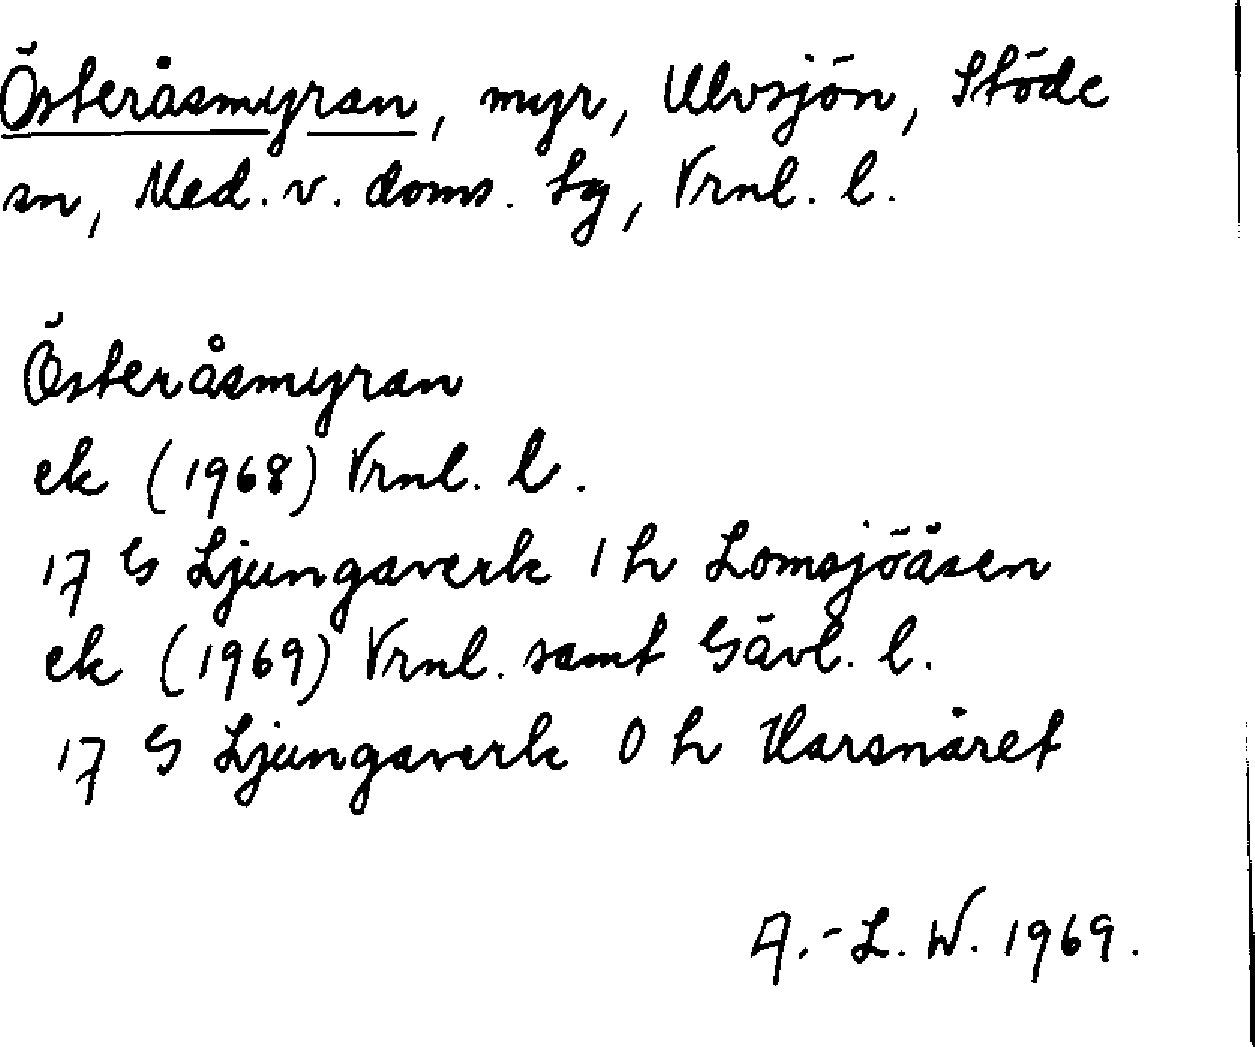 Österåsmyran, myr, Ulvsjön, Stöde
sn, Med. v. doms. lg, Vrnl. l.
Österåsmyran
ek (1968) Vrnl. l.
17 G Ljungaverk 1 h Lomsjöåsen
ek (1969) Vrnl. samt Gävl. l.
17 G Ljungaverk 0 h Harsnåret
A.-L. W. 1969.